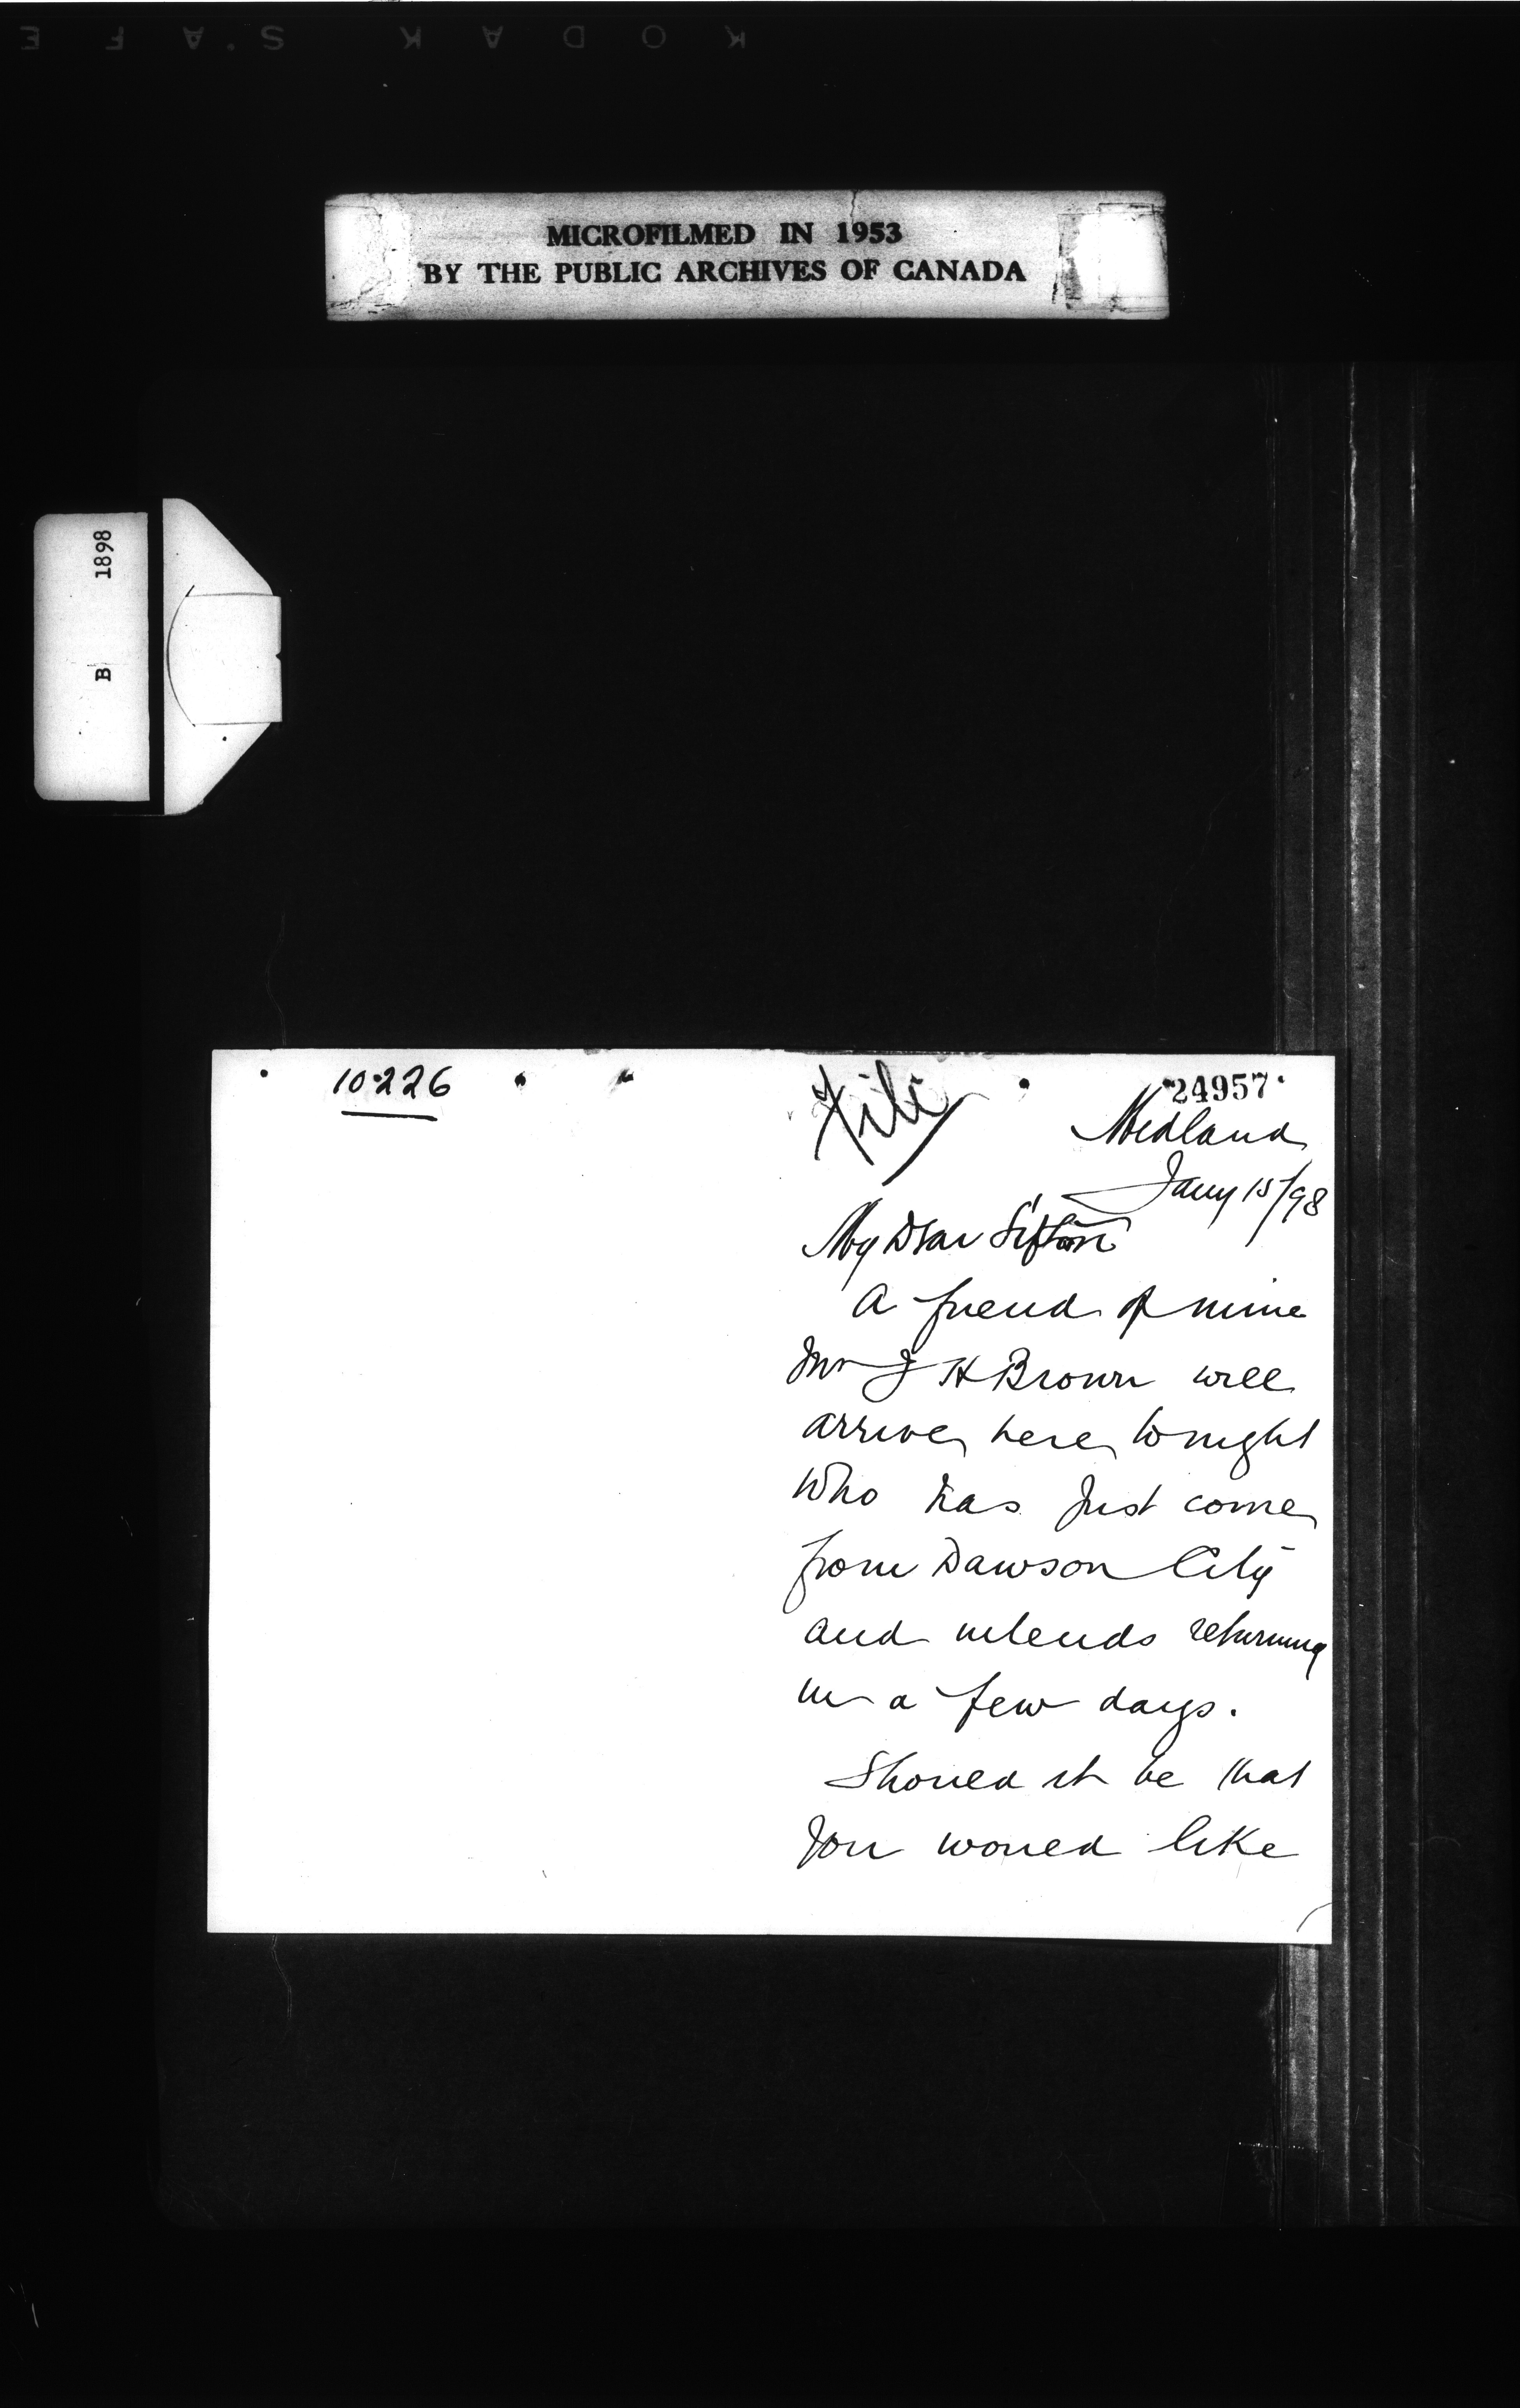 KODAK SAFE
MICROFILMED IN 1953
BY THE PUBLIC ARCHIVES OF CANADA
B 1898
10226
File
24957
Midland
Jany 15/98
My Dear Sifton
A friend of mine
Mr J H Brown will
arrive here tonight
who has just come
from Dawson City
and intends returning
in a few days.
Should it be that
you would like